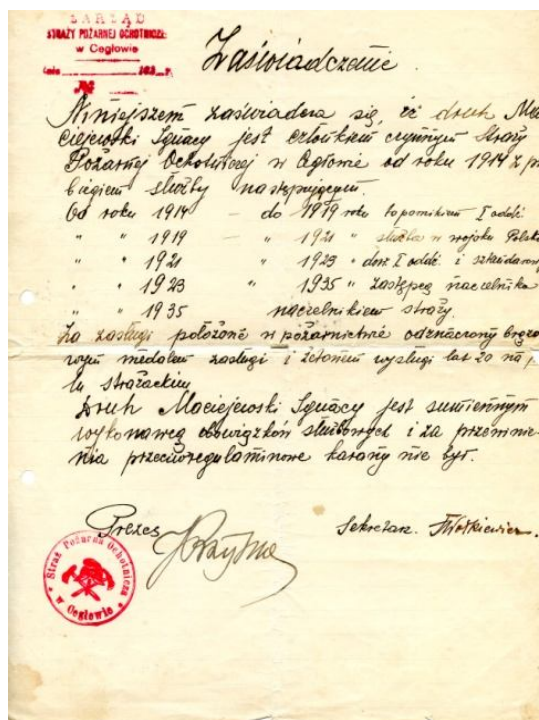 ZARZĄD
STRAŻY POŻARNEJ OCHOTNICZEJ
w Cegłowie
dnia 193 r.
№
Zaświadczenie.
Niniejszem zaświadcza się, iż druh Ma
ciejewski Ignacy jest członkiem czynnym Straży
Pożarnej Ochotniczej w Cegłowie od roku 1914 z prze
biegiem służby następującym.
Od roku 1914 — do 1919 roku topornikiem I oddz.
" " 1919 " 1921 " służba w wojsku Polskiem
" " 1921 " 1923 " dow. I oddz. i sztandarowy
" " 1923 " 1935 " zastępcą naczelnika
" " 1935 naczelnikiem straży.
Za zasługi położone w pożarnictwie odznaczony brązo
wym medalem zasługi i żetonem wysługi lat 20 na p
lu strażackim
Druh Maciejewski Ignacy jest sumiennym
wykonawcą obowiązków służbowych i za przewinie-
nia przeciwregulaminowe karany nie był.
Prezes
Sekretarz.
Straż Pożarna Ochotnicza
w Cegłowie